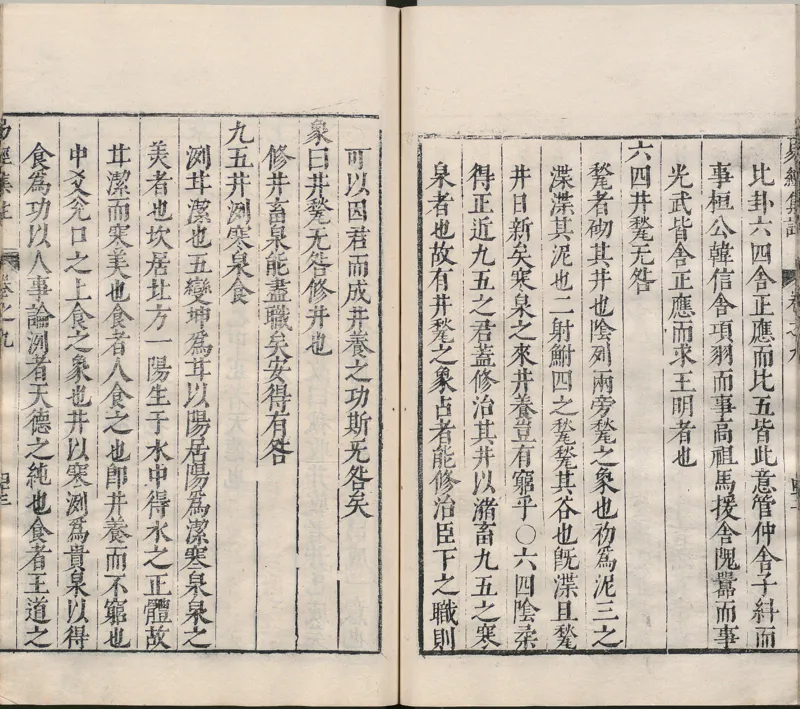 比卦六四舍正應而比五皆此意管仲舍子糾而
事桓公韓信舍項羽而事高祖馬援舍隗囂而事
光武皆舍正應而求王明者也
六四井甃无咎
甃者砌其井也陰列兩旁甃之象也初為泥三之
渫渫其泥也二射鮒四之甃甃其谷也旣渫且甃
井日新矣寒泉之來井養豈有窮乎○六四陰柔
得正近九五之君蓋修治其井以瀦畜九五之寒
泉者也故有井甃之象占者能修治臣下之職則
可以因君而成井養之功斯无咎矣
象曰井甃无咎修井也
修井畜泉能盡職矣安得有咎
九五井洌寒泉食
洌甘潔也五變坤為甘以陽居陽為潔寒泉泉之
美者也坎居北方一陽生于水中得水之正體故
甘潔而寒美也食者人食之也卽井養而不窮也
中爻兊口之上食之象也井以寒洌爲貴泉以得
食為功以人事論洌者天德之純也食者王道之
易經集註 卷之九